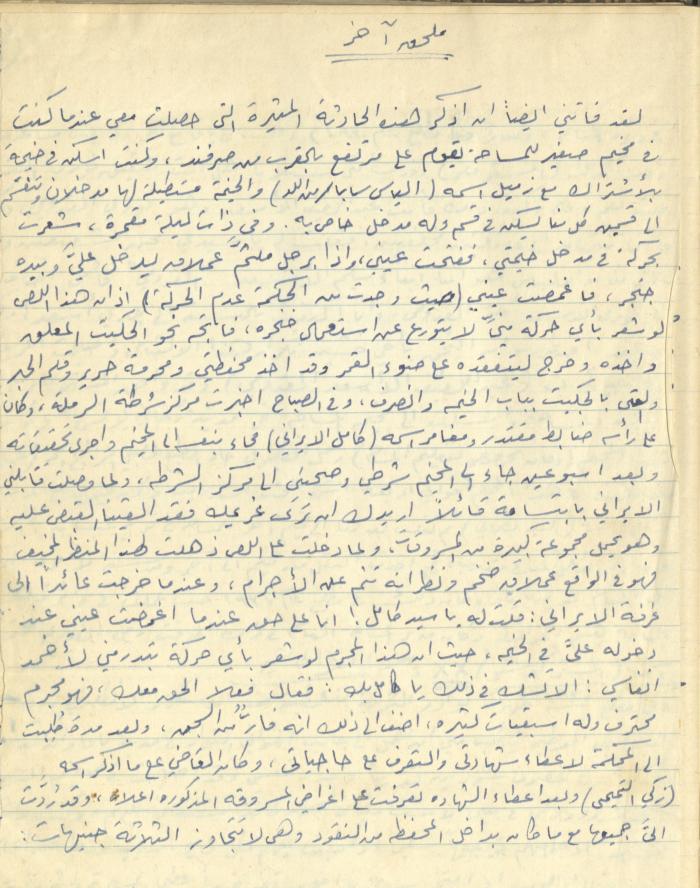 ملحق آخر
لقد فاتني ايضاً ان اذكر هذه الحادثة المثيرة التي حصلت معي عندما كنت
في مخيم صغير للمساحة يقوم على مرتفع بالقرب من صرفند ، وكنت اسكن في خيمة
بالأشتراك مع زميل اسمه ( الياس سابا / من اللد ) والخيمة مستطيلة لها مدخلان وتنقسم
الى قسمين كل منا يسكن في قسم وله مدخل خاص به . وفي ذات ليلة مقمرة ، شعرت
بحركة في مدخل خيمتي ، ففتحت عيني ، واذا برجل ملثم عملاق يدخل عليّ وبيده
خنجر ، فاغمضت عيني ( حيث وجدت من الحكمة عدم الحركة ) اذ ان هذا اللص
لو شعر بأي حركة منّي لا يتورع عن استعمال خنجره ، فاتجه نحو الجكيت المعلق
واخذه وخرج ليتفقده على ضوء القمر وقد اخذ محفظتي ومحرمة حرير وقلم الحبر
والقى بالجكيت بباب الخيمه وانصرف ، وفي الصباح اخبرت مركز شرطة الرملة ، وكان
على رأسه ضابط مقتدر ومغامر اسمه ( كامل الايراني ) فجاء بنفسه الى المخيم واجرى تحقيقاته
وبعد اسبوعين جاء الى المخيم شرطي وصحبني الى مركز الشرطه ، ولما وصلت قابلني
الايراني بابتسامة قائلاً اريدك ان ترى غريمك فقد القينا القبض عليه
وهو يحمل مجموعة كبيرة من المسروقات ، ولما دخلت على اللص ذهلت لهذا المنظر المخيف
فهو في الواقع عملاق ضخم ونظراته تنم عن الأجرام ، وعندما خرجت عائداً الى
غرفة الايراني : قلت له يا سيد كامل ! انا على حق عندما اغمضت عيني عند
دخوله عليّ في الخيمه ، حيث ان هذا المجرم لو شعر بأي حركة تبدر مني لأخمد
انفاسي : الا تشك في ذلك يا كامل بك : فقال فعلا الحق معك ، فهو مجرم
محترف وله اسبقيات كثيره ، اضف الى ذلك انه فارٌّ من السجن ، وبعد مدة طلبت
الى المحكمة لاعطاء شهادتي والتعرف على حاجياتي ، وكان القاضي على ما اذكر اسمه
( زكي التميمي ) وبعد اعطاء الشهاده تعرفت على اغراضي المسروقه المذكوره اعلاه ، وقد رُدّت
اليّ جميعها مع ما كان بداخل المحفظه من النقود وهي لا تتجاوز الثلاثة جنيهات :